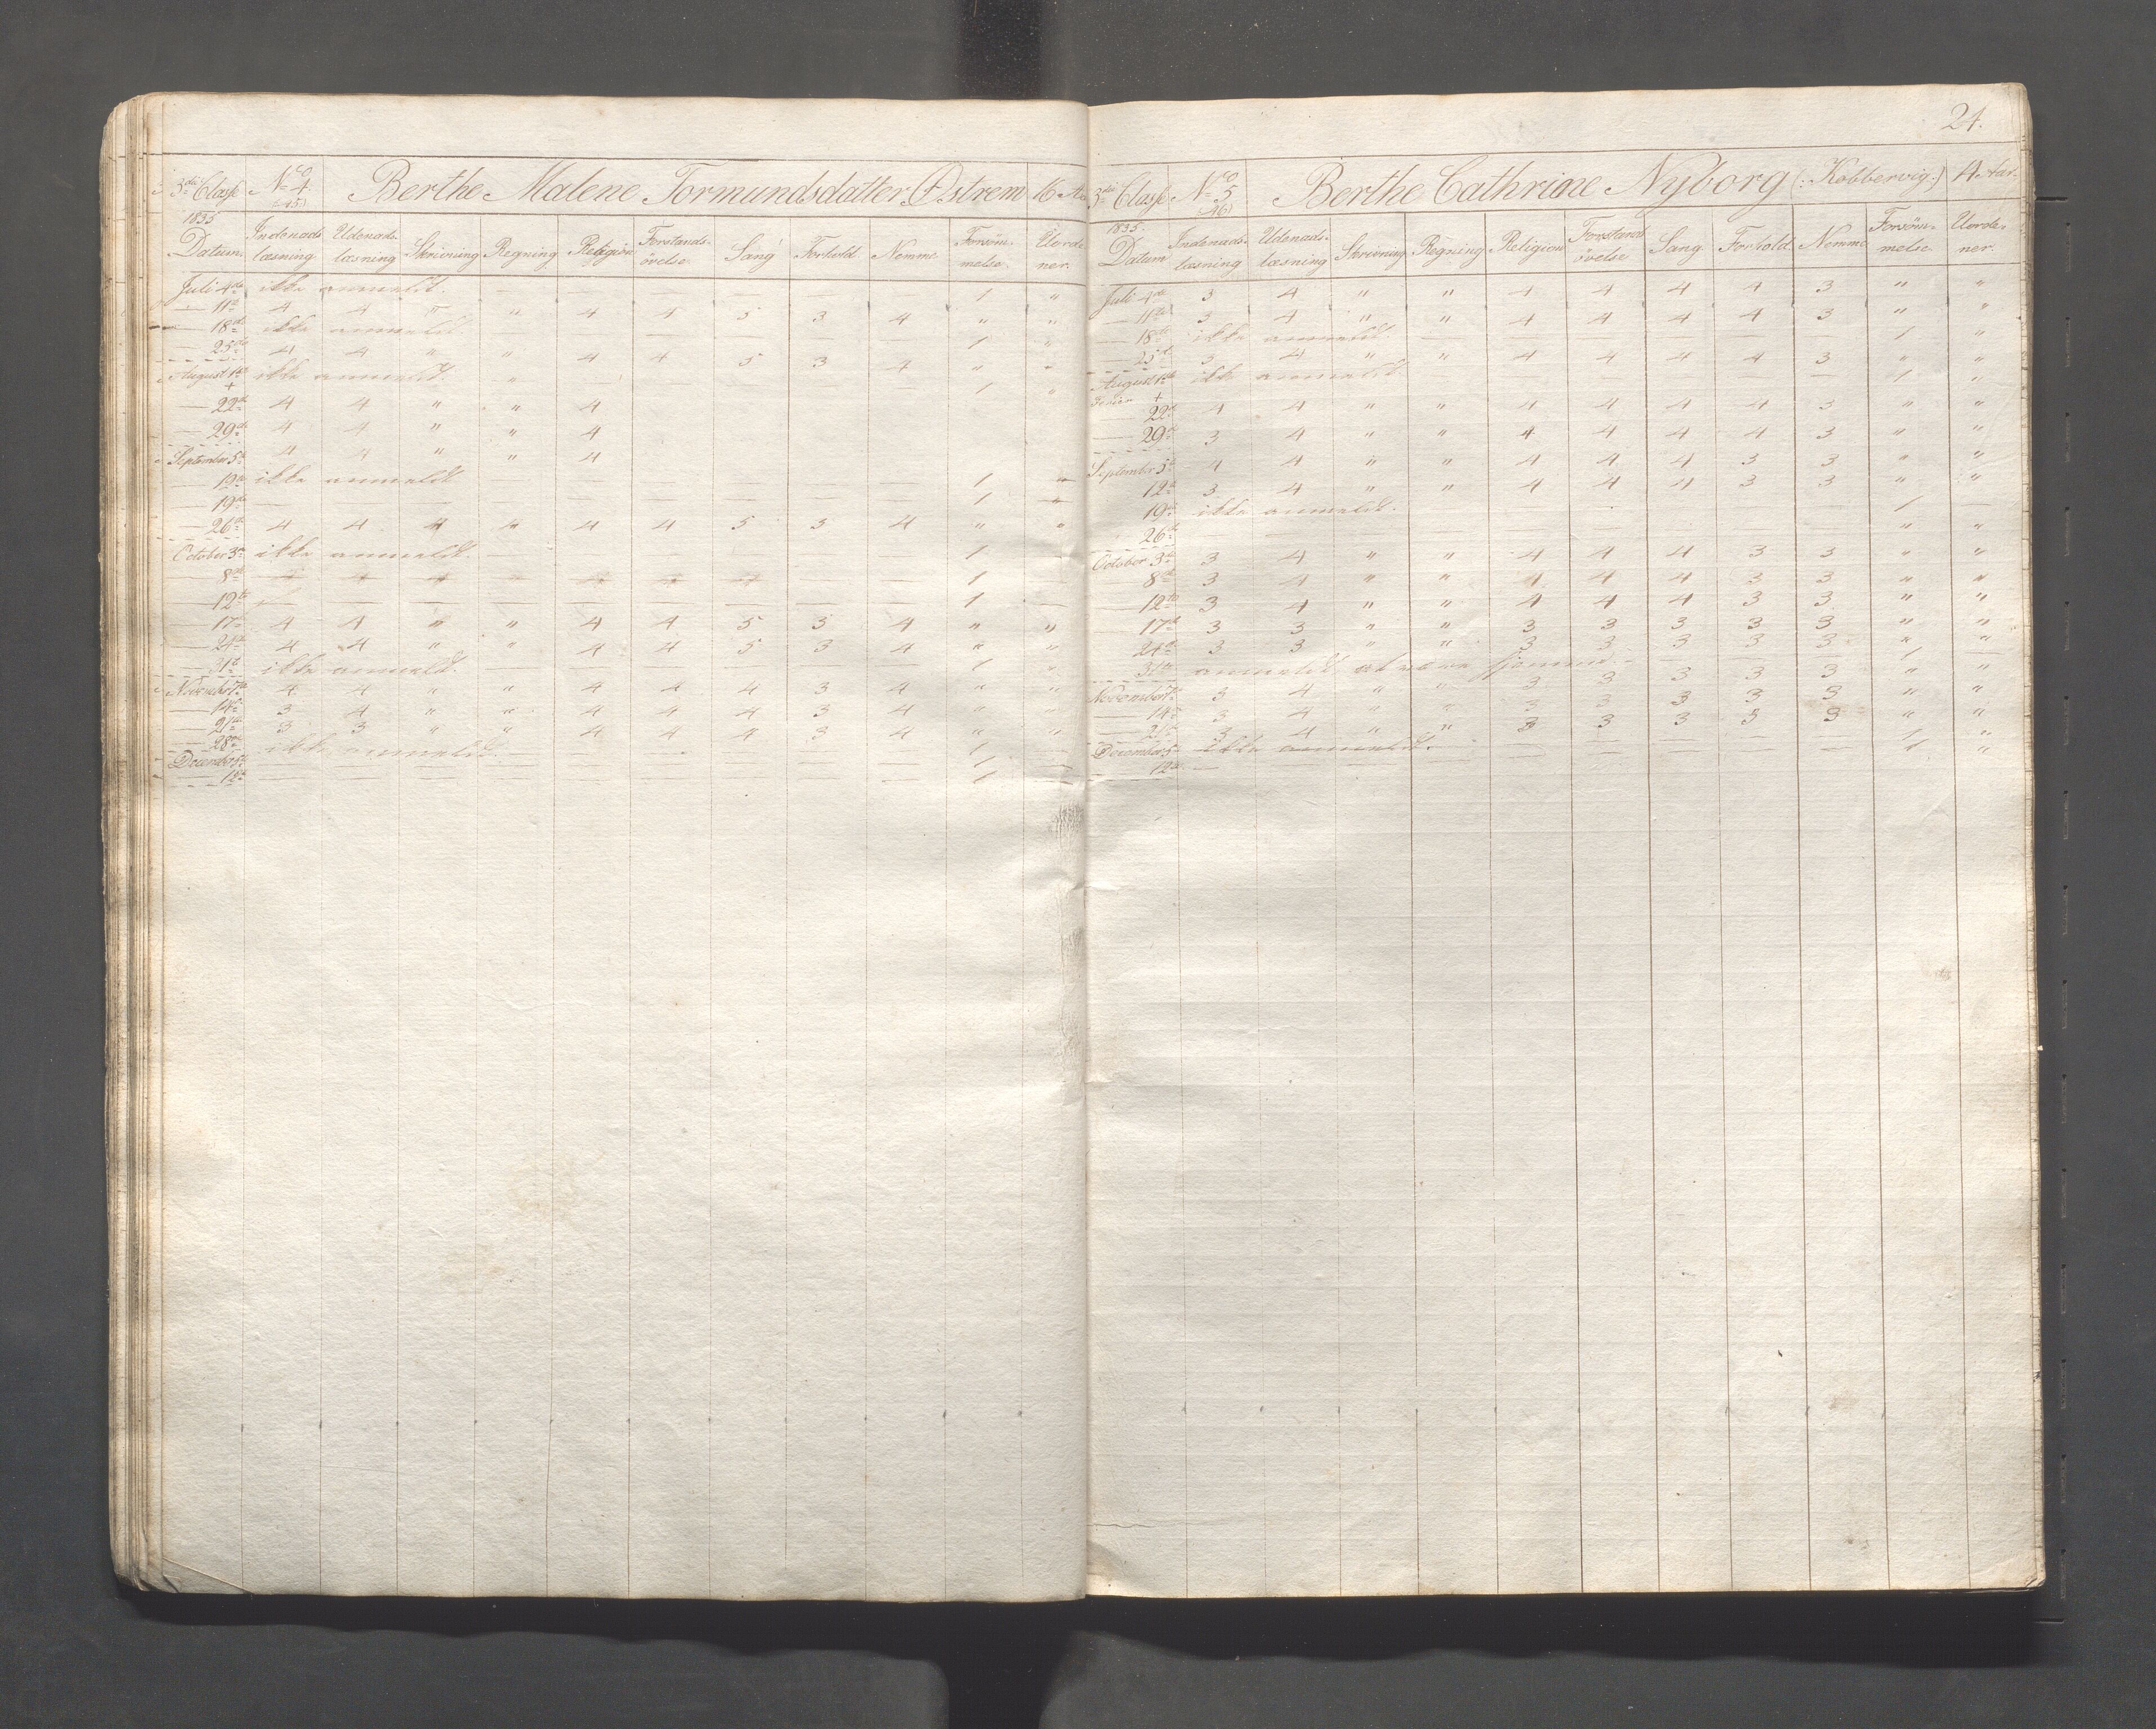 3die Classe No 4. (45.) Berthe Malene Tormundsdatter Østrem 16 Aar
1835
Datum. Indenads læsning. Udenads- læsning Skrivning Regning Religion Forstands- övelse. Sang Forhold. Nemme. Forsöm- melse. Uorde ner.
Juli 4de ikke anmeldt. — — — — — — 1 "
— 11te 4 4 " " 4 4 5 3 4 " "
— 18de ikke anmeldt. — — — — — — 1 "
— 25de 4 4 " " 4 4 5 3 4 " "
August 1ste ikke anmeldt. — — — — — 1 "
+
— 22de 4 4 " " 4
— 29de 4 4 " " 4
September 5te 4 4 " " 4
— 12te ikke anmeldt — — — — — — — 1 "
— 19de — — — — — — — 1 "
— 26de 4 4 4 4 4 4 5 3 4 " "
October 3die ikke anmeldt — — — — — — 1 —
— 8de 4 4 4 — 4 4 4 — — 1 —
— 12te — — — — — — — — 1 —
— 17de 4 4 " " 4 4 5 3 4 " "
— 24de 4 4 " " 4 4 5 3 4 " "
— 31te ikke anmeldt. — — — — — — 1 "
November 7de 4 4 " " 4 4 4 3 4 " "
— 14de 3 4 " " 4 4 4 3 4 " "
— 21de 3 3 " " 4 4 4 3 4 " "
— 28de ikke anmeldt. — — — — — — 1 —
December 5te — — — — — — — — — 1 —
— 12te — — — — — — — — — 1 —
21.
3die Classe No 5 (46.) Berthe Cathrine Nyborg (: Kobbervig :) 14 Aar.
1835.
Datum Indenads- læsning Udenads- læsning Skrivning Regning Religion Forstands övelse Sang Forhold Nemme Forsöm- melse Uorde- ner.
Juli 4de 3 4 " " 4 4 4 4 3 " "
— 11te 3 4 " " 4 4 4 4 3 " "
— 18de ikke anmeldt. — — — — — — 1 "
— 25de 3 4 " " 4 4 4 4 3 " "
August 1ste ikke anmeldt — — — — — — 1 "
Ferien +
22de 4 4 " " 4 4 4 4 3 " "
— 29de 3 4 " " 4 4 4 4 3 " "
September 5te 4 4 " " 4 4 4 3 3 " "
— 12te 3 4 " " 4 4 4 3 3 " "
— 19de ikke anmeldt. — — — — — 1 —
26de — — — — — — — — — " "
October 3die 3 4 " " 4 4 4 3 3 " "
— 8de 3 4 " " 4 4 4 3 3 " "
— 12te 3 4 " " 4 4 4 3 3 " "
— 17de 3 3 " " 3 3 3 3 3 " "
— 24de 3 3 " " 3 3 3 3 3 " "
— 31te anmeldt at være — — — — 1 —
November 7de 3 4 " " 3 3 3 3 3 " "
— 14de 3 4 " " 3 3 3 3 3 " "
— 21de 3 4 " " 3 3 3 3 3 " "
December 5te ikke anmeldt. — — — — — 1 "
— 12te — — — — — — — — 1 "